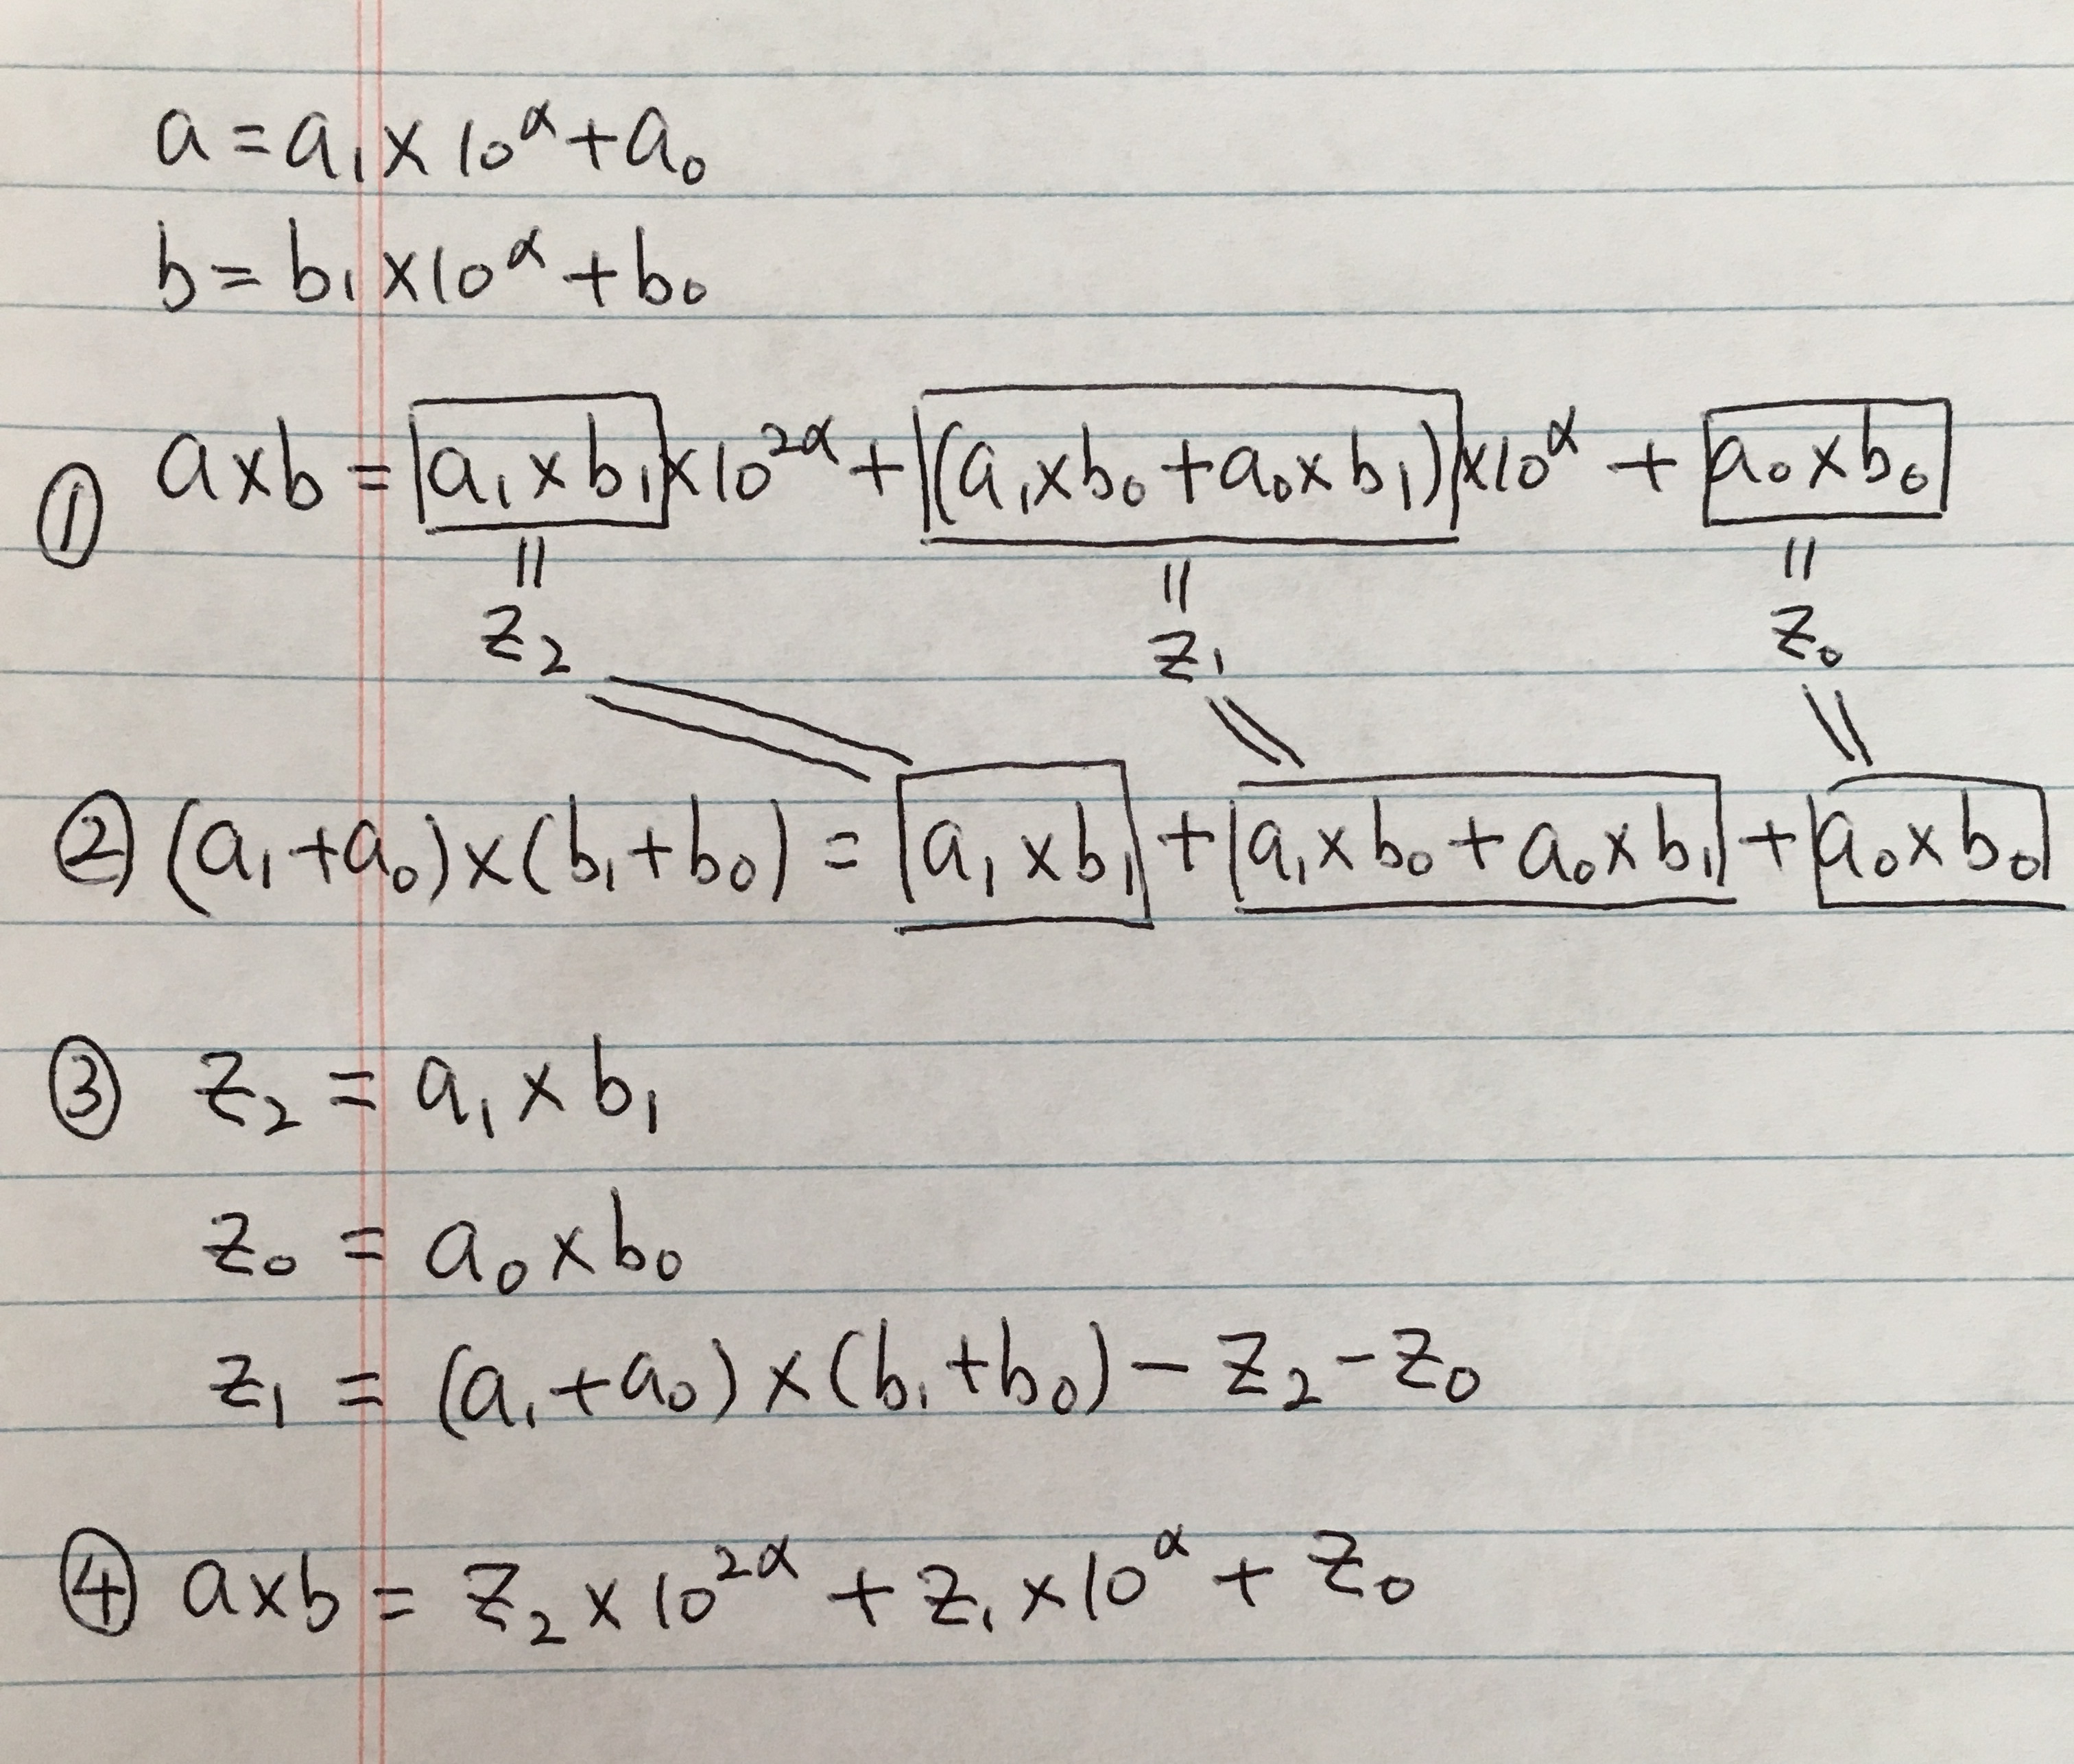 a = a₁ × 10^α + a₀
b = b₁ × 10^α + b₀
① a×b = a₁ × b₁ × 10^2α + (a₁×b₀ + a₀×b₁) × 10^α + a₀ × b₀
= = =
z₂ z₁ z₀
= = =
② (a₁ + a₀) × (b₁ + b₀) = a₁ × b₁ + a₁×b₀ + a₀×b₁ + a₀×b₀
③ z₂ = a₁ × b₁
z₀ = a₀ × b₀
z₁ = (a₁ + a₀) × (b₁ + b₀) − z₂ − z₀
④ a×b = z₂ × 10^2α + z₁ × 10^α + z₀